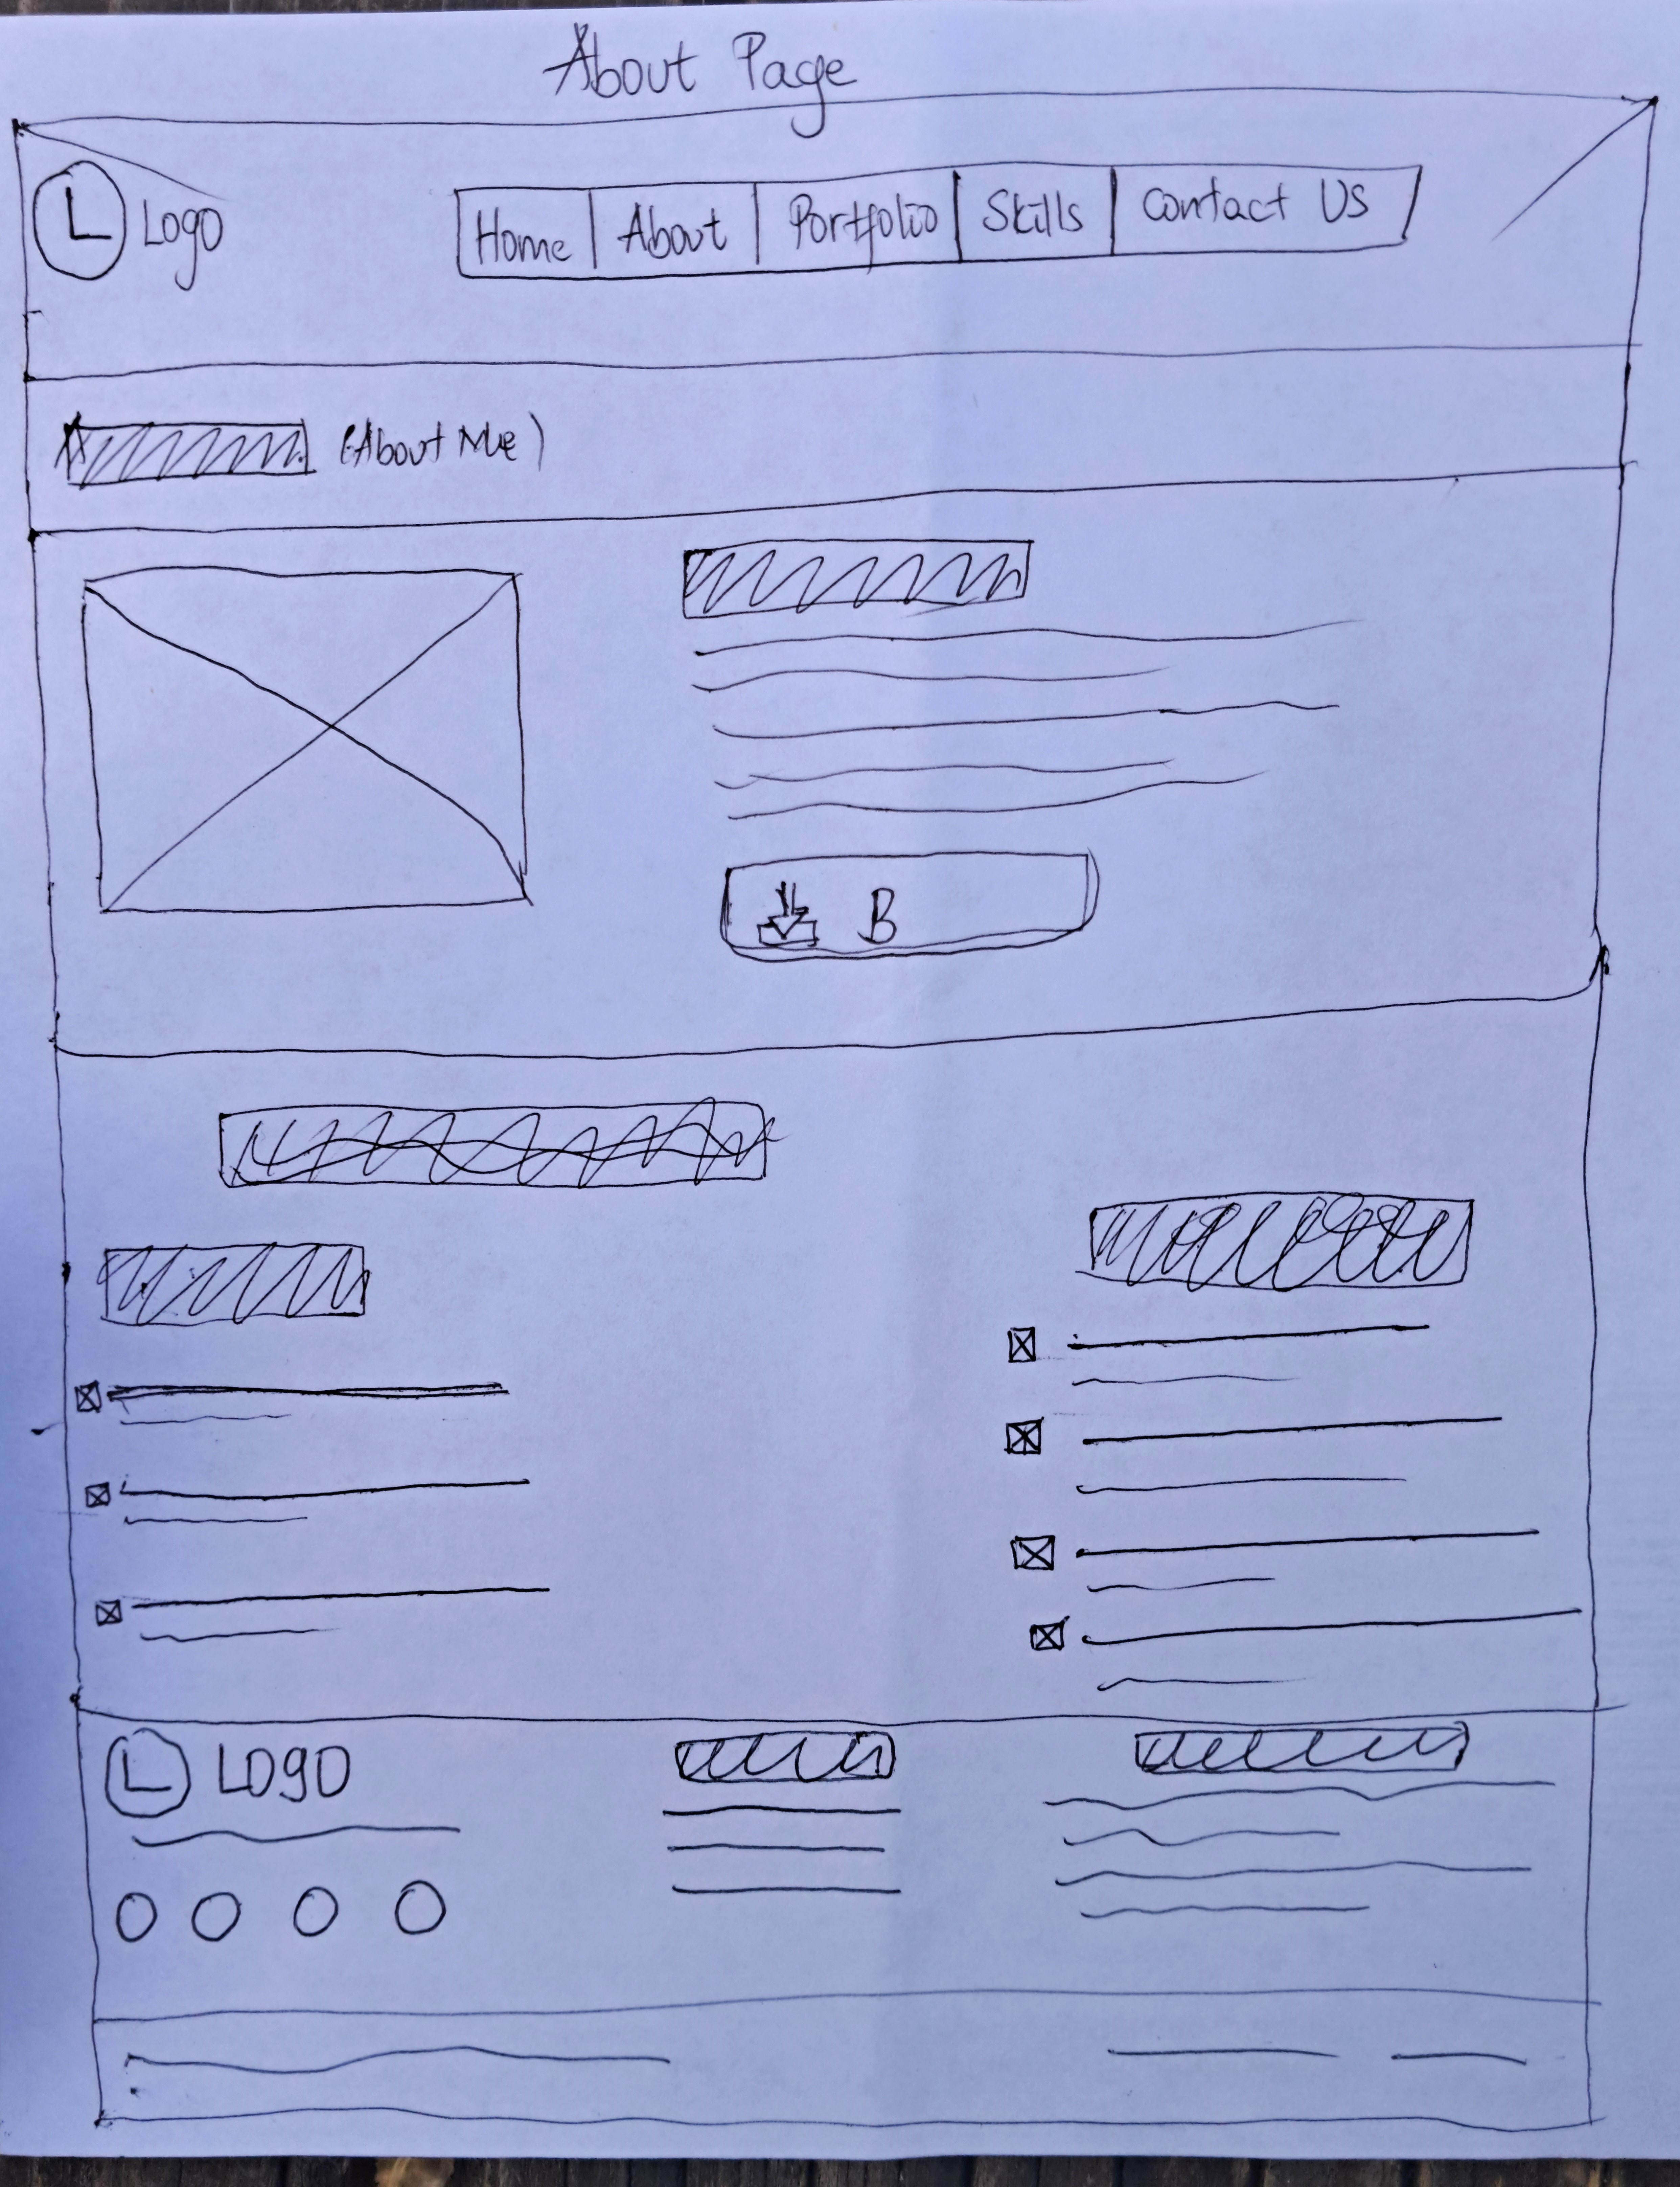 About Page
L Logo
Home About Portfolio Skills Contact Us
(About Me)
B
L LOGO